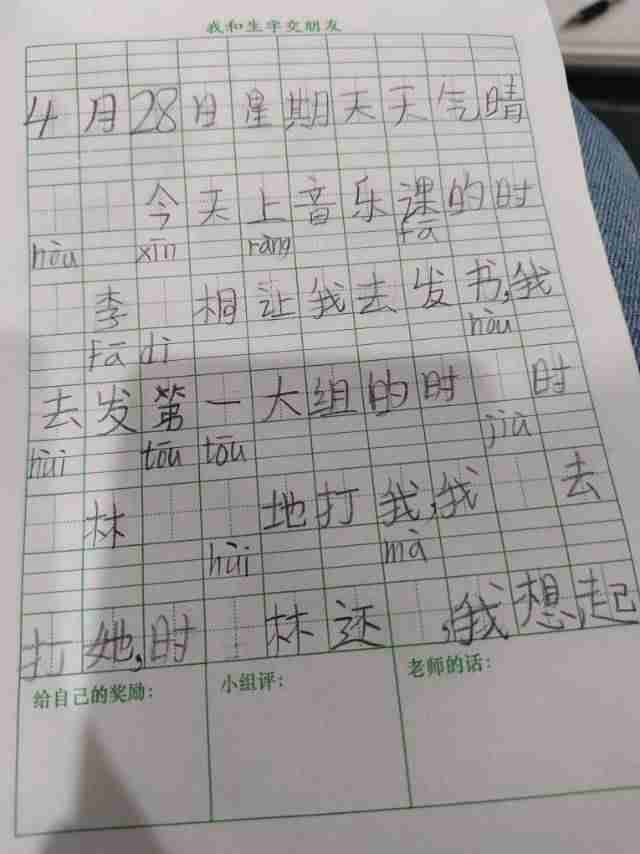 我和生字交朋友
4月28日星期天天气晴
今天上音乐课的时
hòu xīn ràng fā
李 桐让我去发书,我
fā dì hòu
去发第一大组的时 时
hùi tōu tōu jiù
林 地打我,我 去
hùi mà
打她,时 林还 ,我想起
给自己的奖励: 小组评: 老师的话: